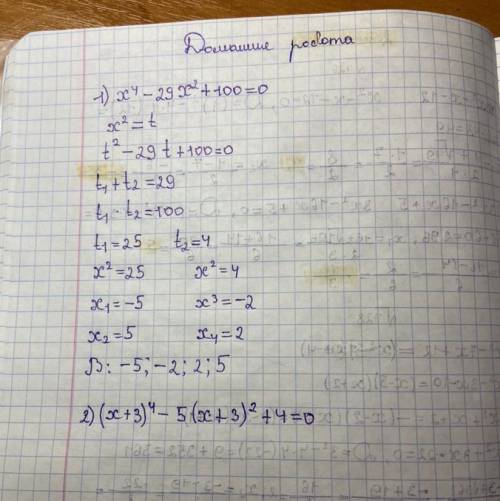 Домашнє робота
1) x⁴ - 29x² + 100 = 0
x² = t
t² - 29t + 100 = 0
t₁ + t₂ = 29
t₁ · t₂ = 100
t₁ = 25 t₂ = 4
x² = 25 x² = 4
x₁ = -5 x³ = -2
x₂ = 5 x₄ = 2
В: -5; -2; 2; 5
2) (x+3)⁴ - 5(x+3)² + 4 = 0